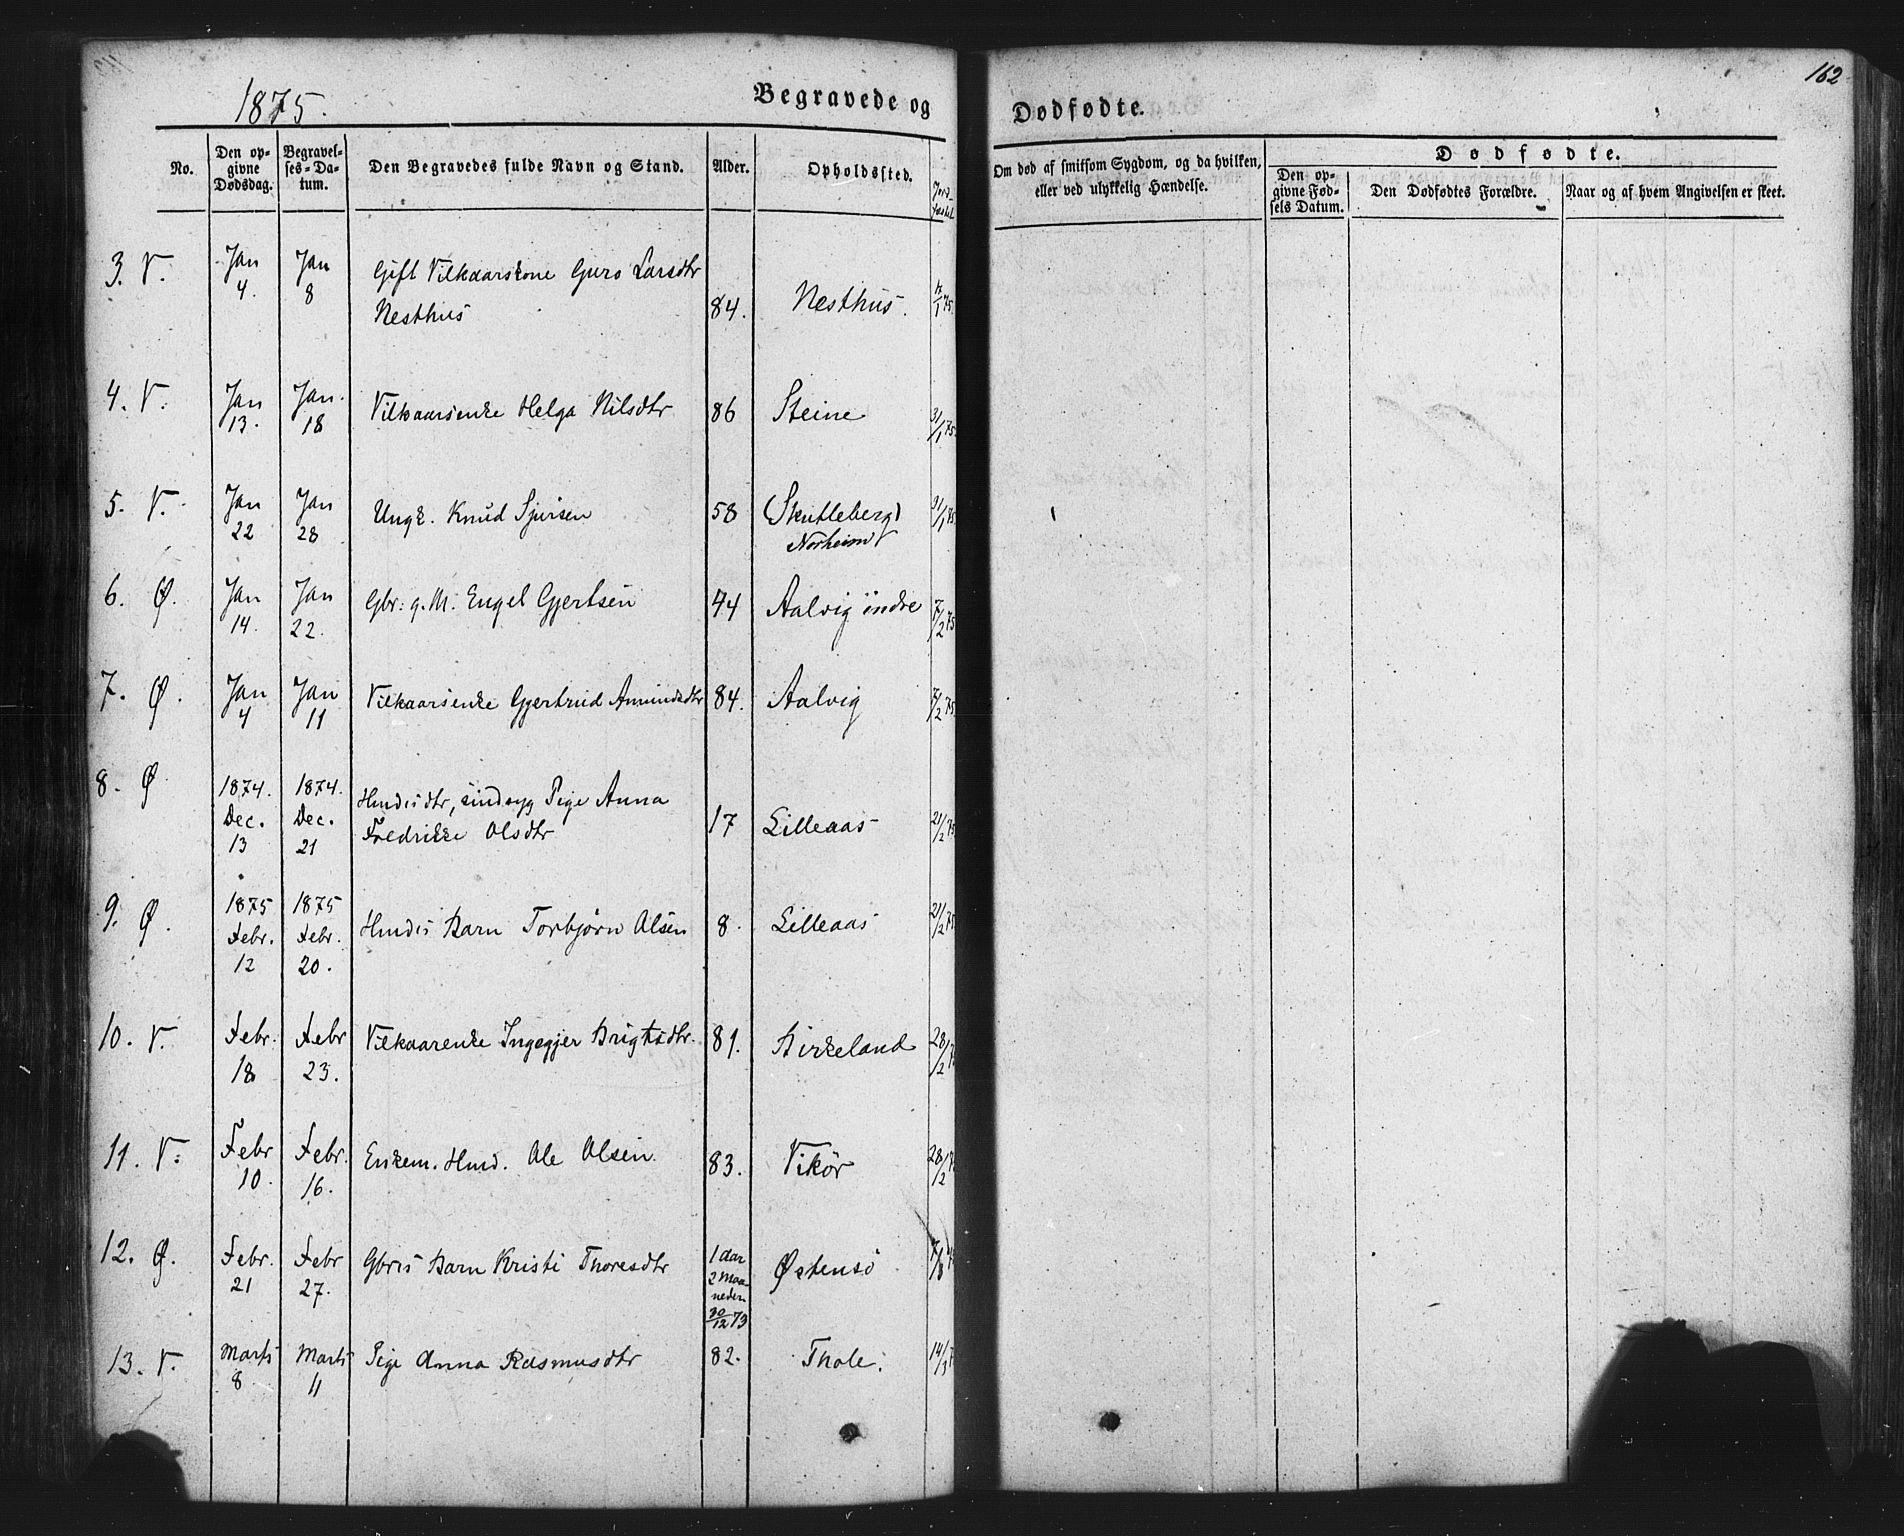 1875.
Begravede og
No.
Den opgivne Dødsdag.
Begravelses-Datum.
Den Begravedes fulde Navn og Stand.
Alder.
Opholdssted.
3. V. Jan 4. Jan 8 Gift Vilkaarskone Guro Larsdtr
Nesthus 84. Nesthus.
4. V. Jan 13. Jan. 18 Vilkaarsenke Helga Nilsdtr 86 Steine 31/1 75.
5. V. Jan 22 Jan 28 Ungk. Knud Sjursen 58 (Skutleberg) 31/1 75
Norheim
6. Ø. Jan 14. Jan 22. Gbr: g. M. Engel Gjertsen 44 Aalvig indre 7/2 75
7. Ø. Jan 4 Jan 11 Vilkaarsenke Gjertrud Amundsdtr 84. Aalvig 7/2 75
8. Ø 1874. Dec. 13 1874. Dec. 21 Hmdsdtr, sindsyg Pige Anna
Fredrikke Olsdtr 17 Lilleaas 21/2 75
9. Ø. 1875 Febr. 12 1875 Febr. 20. Hmds Barn Torbjørn Olsen 8. Lilleaas 21/2 75
10. V. Febr. 18 Febr 23. Vilkaarenke Ingegjer Brigtsdtr. 81. Birkeland 28/2
11. V. Febr 10. Febr. 16. Enkem. Hmd. Ole Olsen 83. Vikør 28/2
12. Ø. Febr. 21 Febr 27. Gbrs Barn Kristi Thoresdtr 1 Aar 2 Maaneder 30/12 73 Østensø
13. V. Marts 8 Marts 11 Pige Anna Rasmusdtr 82. Thole. 14/3
162
Dødfødte.
Om død af smitsom Sygdom, og da hvilken,
eller ved ulykkelig Hændelse.
Dødfødte.
Den opgivne Fødsels Datum.
Den Dødfødtes Forældre.
Naar og af hvem Angivelsen er skeet.